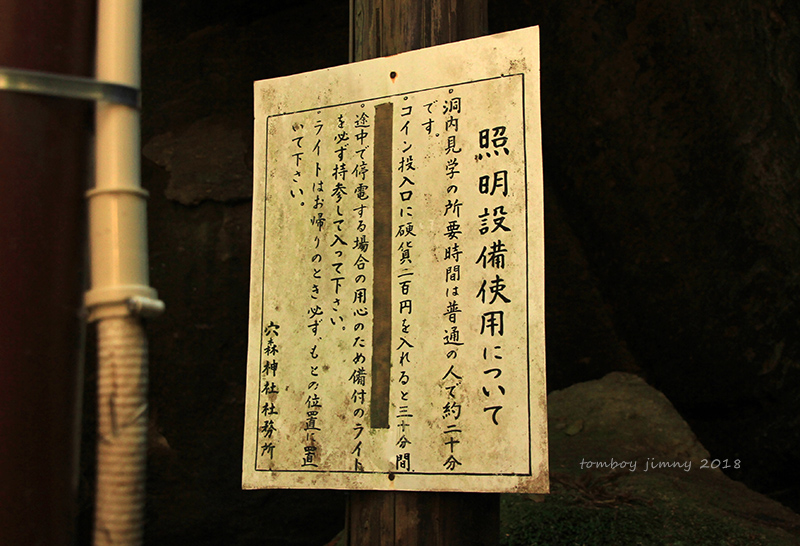 照明設備使用について
。洞内見学の所要時間は普通の人で約二十分
です。
。コイン投入口に硬貨二百円を入れると三十分間
。途中で停電する場合の用心のため備付のライト
を必ず持参して入って下さい。
。ライトはお帰りのとき必ずもとの位置に置
いて下さい。
穴森神社社務所
tomboy jimny 2018